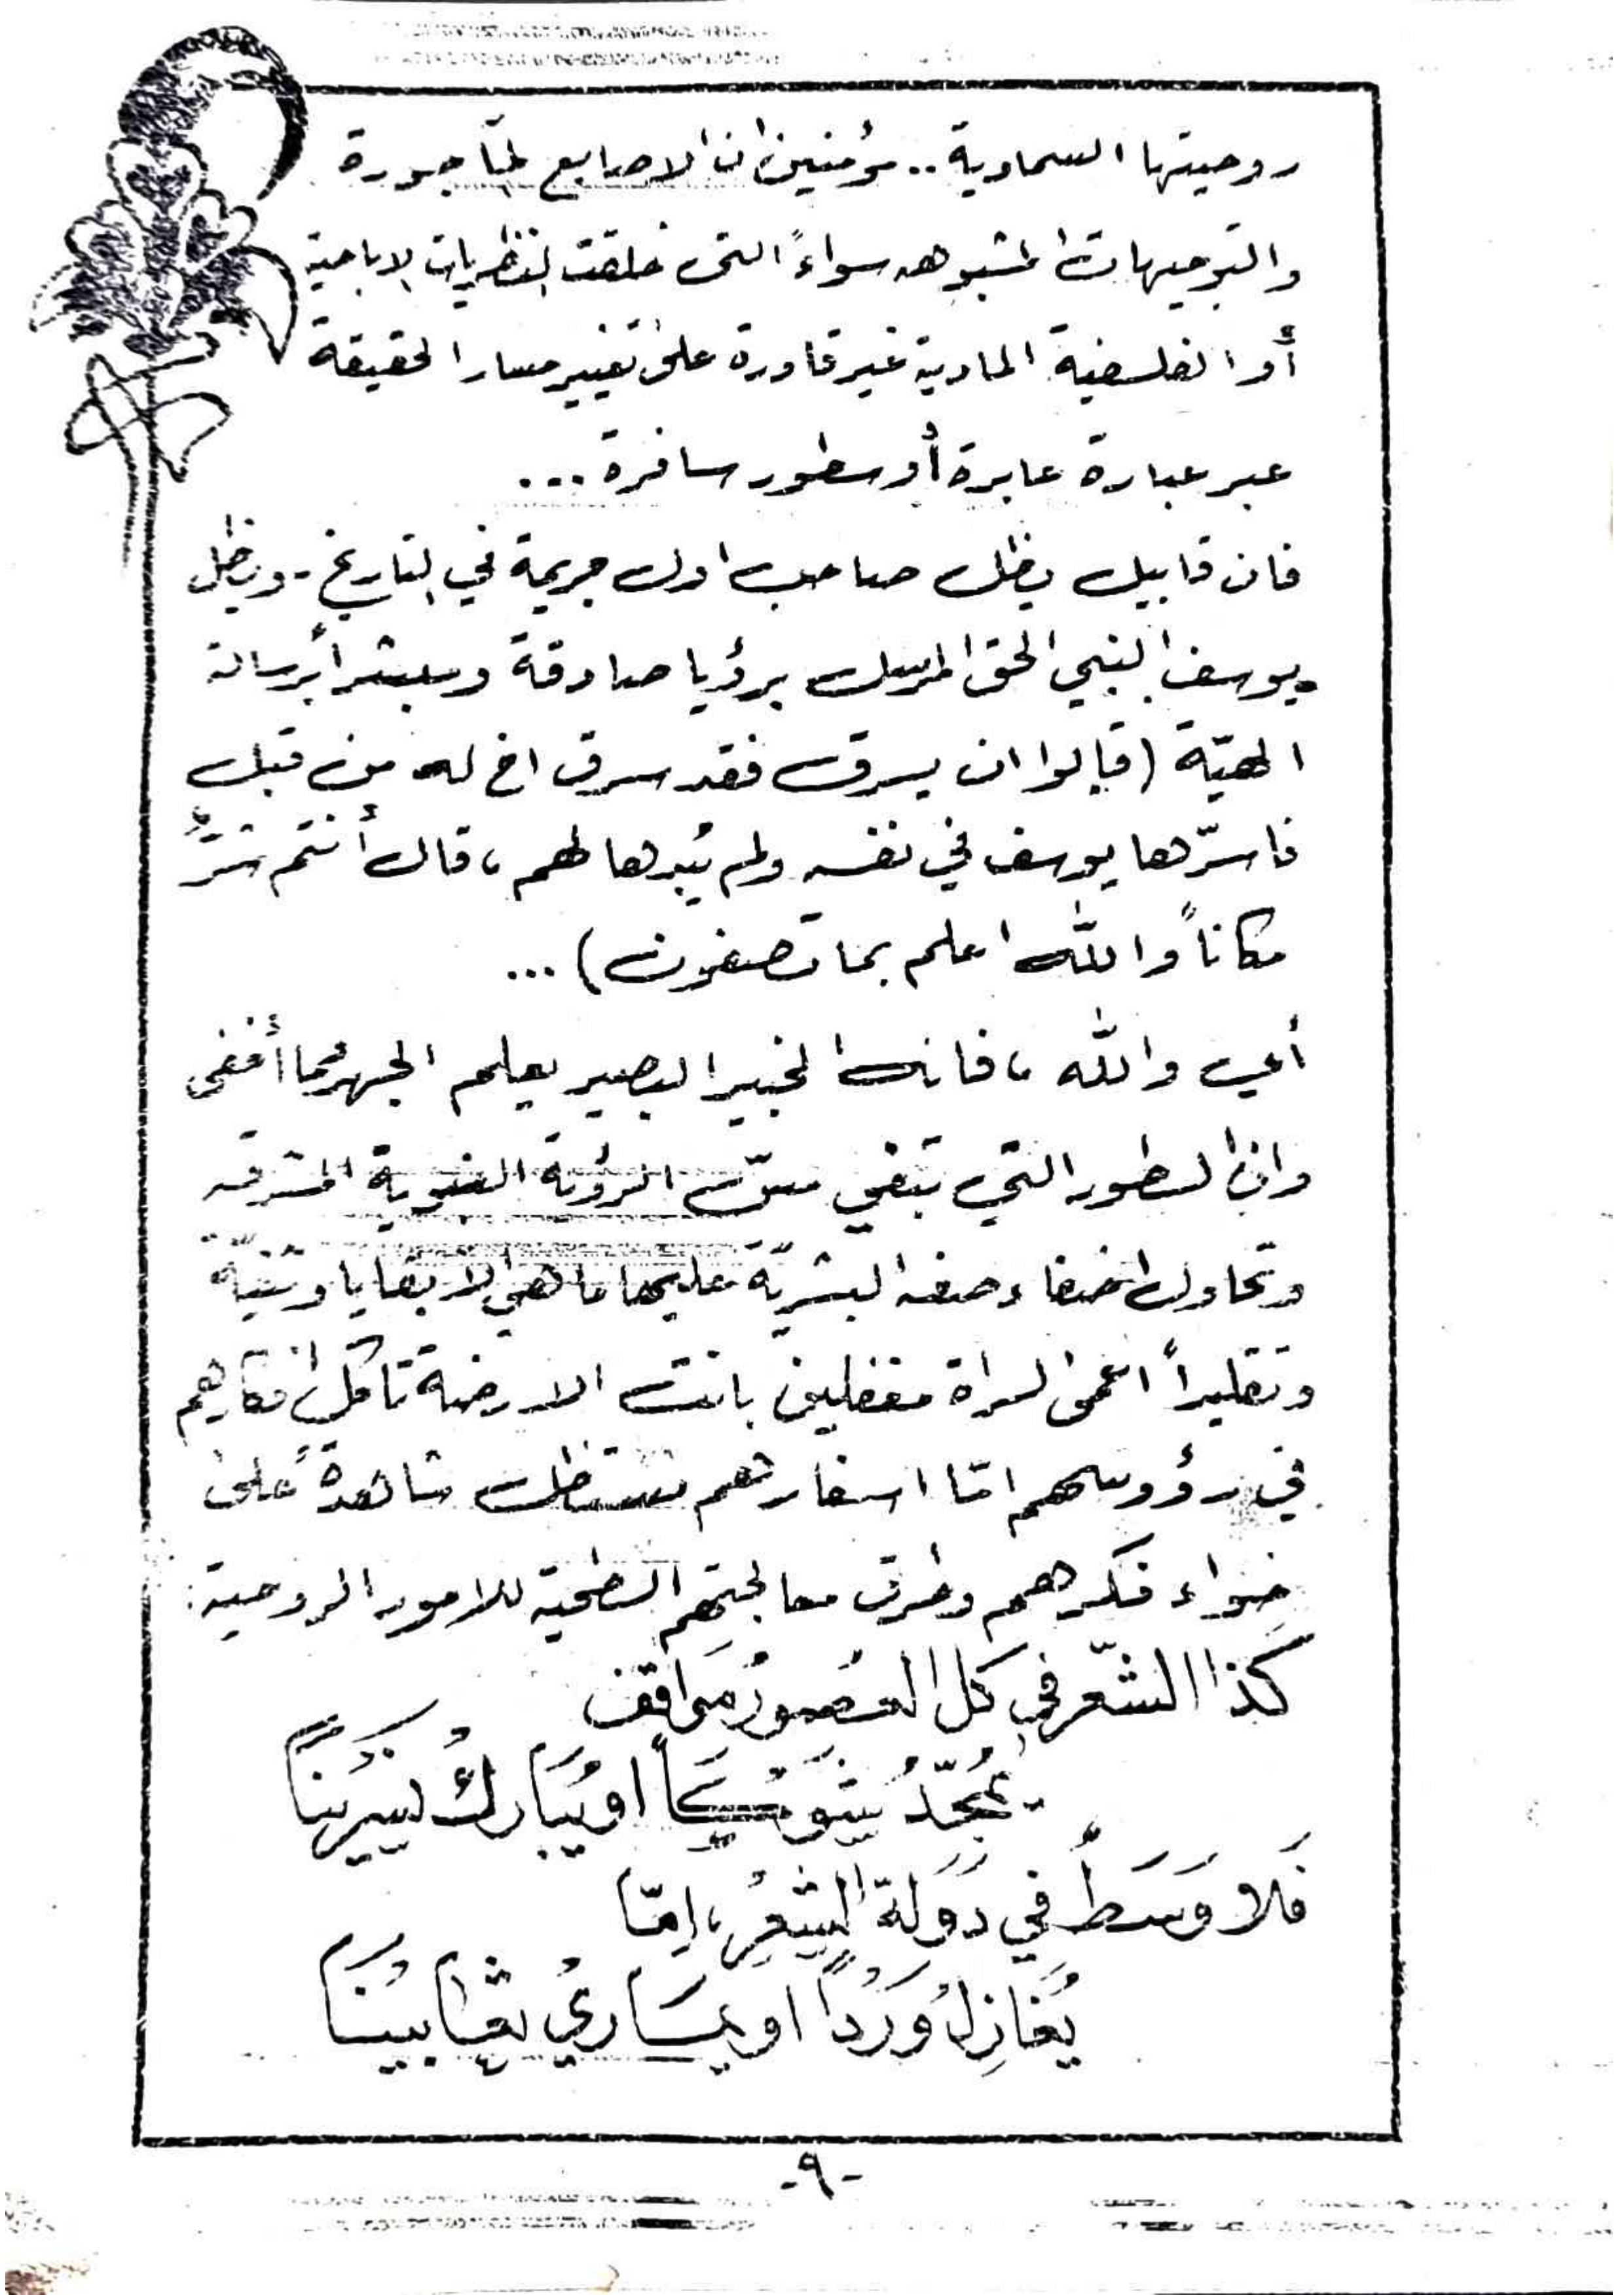 روحيتها السماوية .. مؤمنين ان الاصابع المأجورة
والتوجيهات المشبوهه سواءً التي خلقت النظريات الاباحية
أو الفلسفية المادية غير قادرة على تغيير مسار الحقيقة
عبر عبارة عابرة أو سطور سافرة ...
فان قابيل يظل صاحب اول جريمة في التاريخ - ويظل
يوسف النبي الحق المرسل برؤيا صادقة ومبشراً برسالة
الهيّة (قالوا ان يسرق فقد سرق اخ له من قبل
فاسرّها يوسف في نفسه ولم يُبدها لهم ، قال أنتم شرٌّ
مكاناً والله اعلم بما تصفون) ...
أي والله ، فانك الخبير البصير يعلم الجهر وما أخفى
وان السطور التي تبتغي الرؤية النبوية المشرقه
وتحاول اضفاء صفه البشريّة عليها ما هي الا بقايا وثنيّة
وتقليداً اعمى لمرآة مغفلين باتت الارضة تأكل افكارهم
في رؤوسهم امّا اسفارهم فستظل شاهدةً على
خواء فكرهم وطرق معالجتهم السطحية للامور الروحية :
كَذا الشّعر في كل العُصورُ مَواقف
يُمجّدُ شَوكاً او يُبَاركُ نَسِرينَاً
فَلا وَسَطٌ في دَولة الشِعرِ ، اِمّا
يُغَازِلُ وَرَدُاً او يُسَاريُ ثعَابينَاً
-٩-